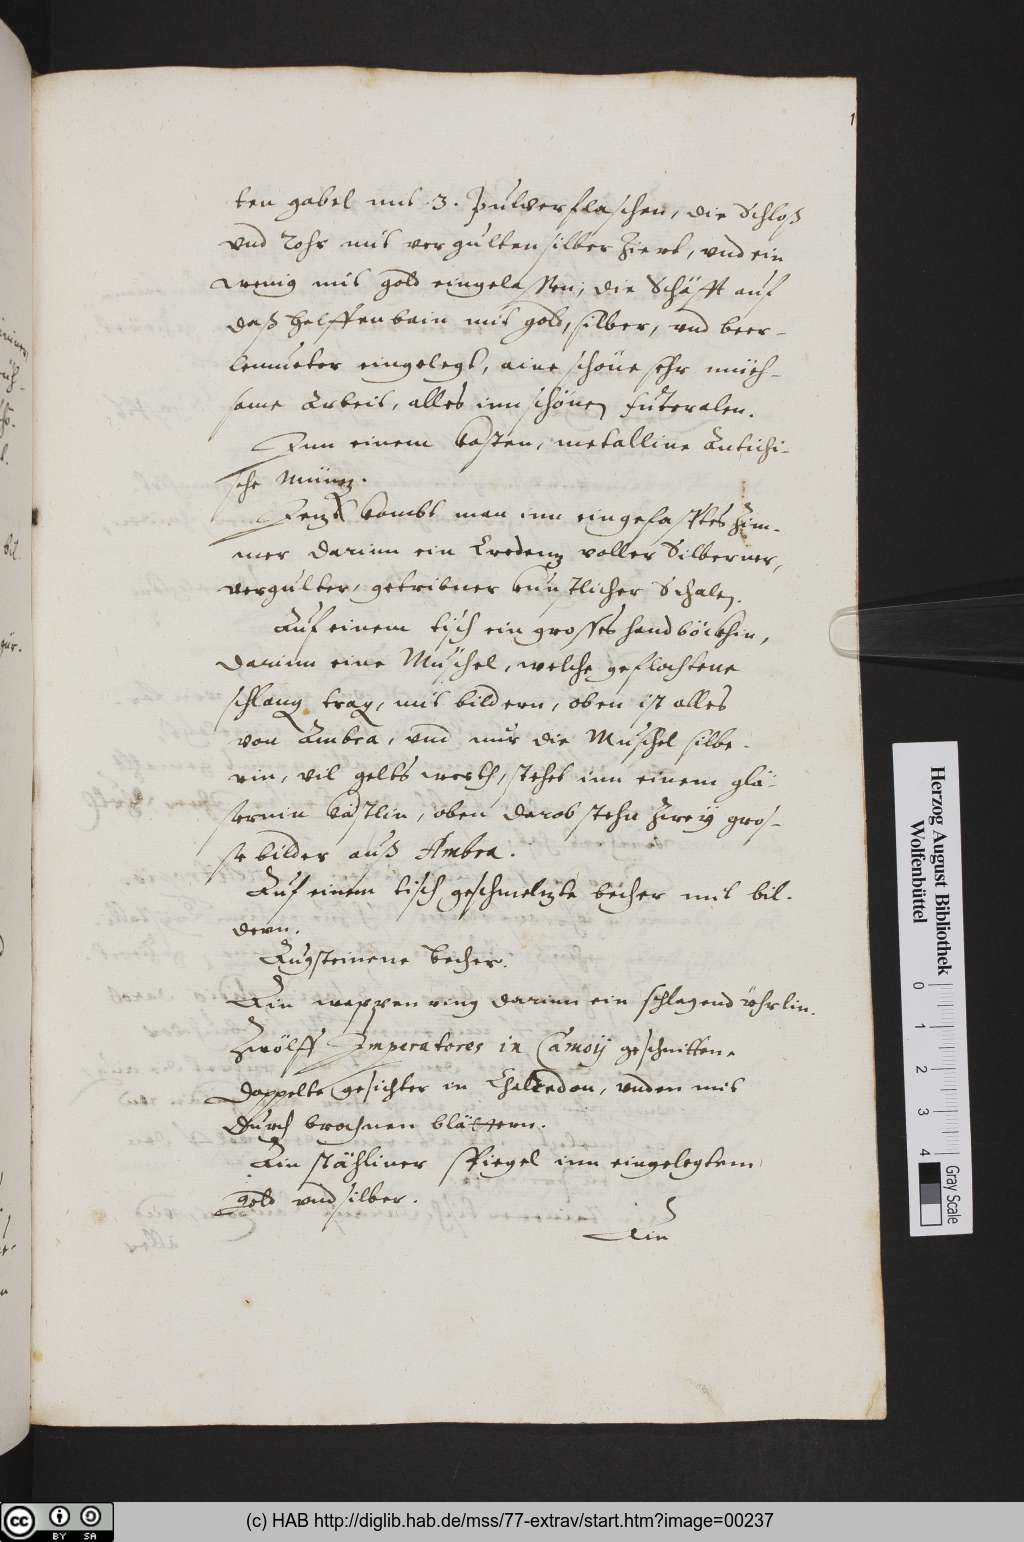 ten gabel mit .3. Pulverflaschen, die Schloß
vnd Rohr mit vergulten silber ziert, vnd ein
wenig mit gold eingelassen, die Schäfft auß
daß helffenbain mit gold, silber, vnd beer-
lemueter eingelegt, aine schöne sehr müeh-
same Arbeit, alles inn schönen Futeralen.
Inn einem kasten, metalline Antichi-
sche Müntz.
Jenzt kombt man inn eingefasstes Zim-
mer darinn ein Credenz voller Silberner,
vergulter, getribner kunstlicher Schalen.
Auf einem tisch ein grosses handböckhin,
darinn eine Muschel, welche geflochtene
schlang trag, mit bildern, oben ist alles
von Ambra, vnd nur die Muschel silbe-
rin, vil gelts werth, stehet inn einem glä-
sernin kästlin, oben darob stehn zwey gros-
se bilder auß Ambra.
Auf einem tisch geschmeltzte becher mit bil-
dern.
Augsteinene becher.
Ein wappen ring darinn ein schlagend vhrlin.
Zwölff Imperatores in Camoij geschnitten
doppelte gesichter in Chalcedon, vnden mit
durch brochnen blättern.
Ein stähliner spiegel inn eingelegtem
gold vnd silber.
Ein
1
bil
Herzog August Bibliothek
Wolfenbüttel
0 1 2 3 4
Gray Scale
cc BY SA
(c) HAB http://diglib.hab.de/mss/77-extrav/start.htm?image=00237